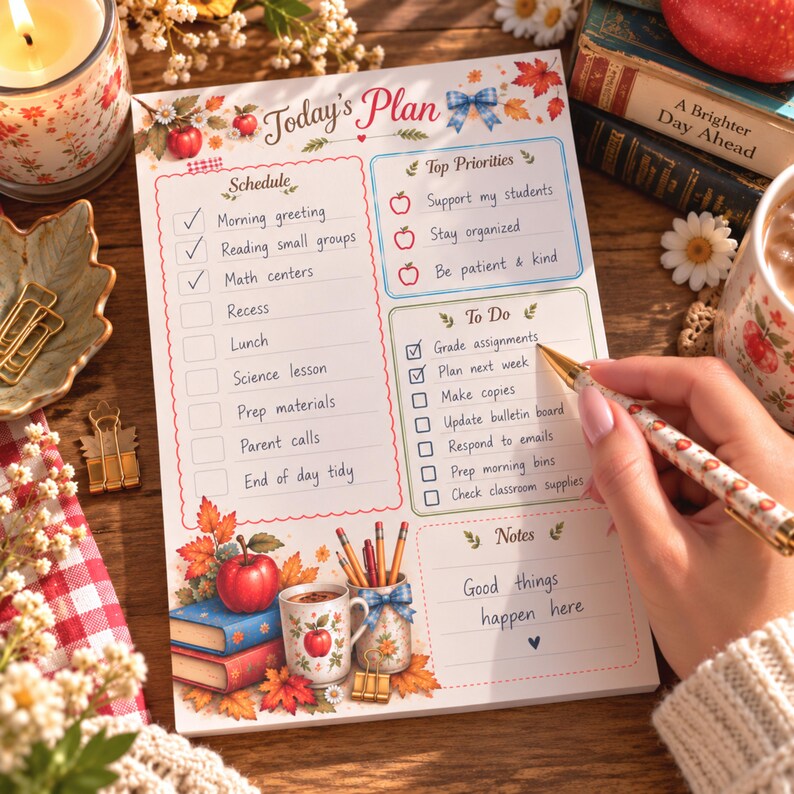 Today's Plan
Schedule
Morning greeting
Reading small groups
Math centers
Recess
Lunch
Science lesson
Prep materials
Parent calls
End of day tidy
Top Priorities
Support my students
Stay organized
Be patient & kind
To Do
Grade assignments
Plan next week
Make copies
Update bulletin board
Respond to emails
Prep morning bins
Check classroom supplies
Notes
Good things
happen here
A Brighter
Day Ahead